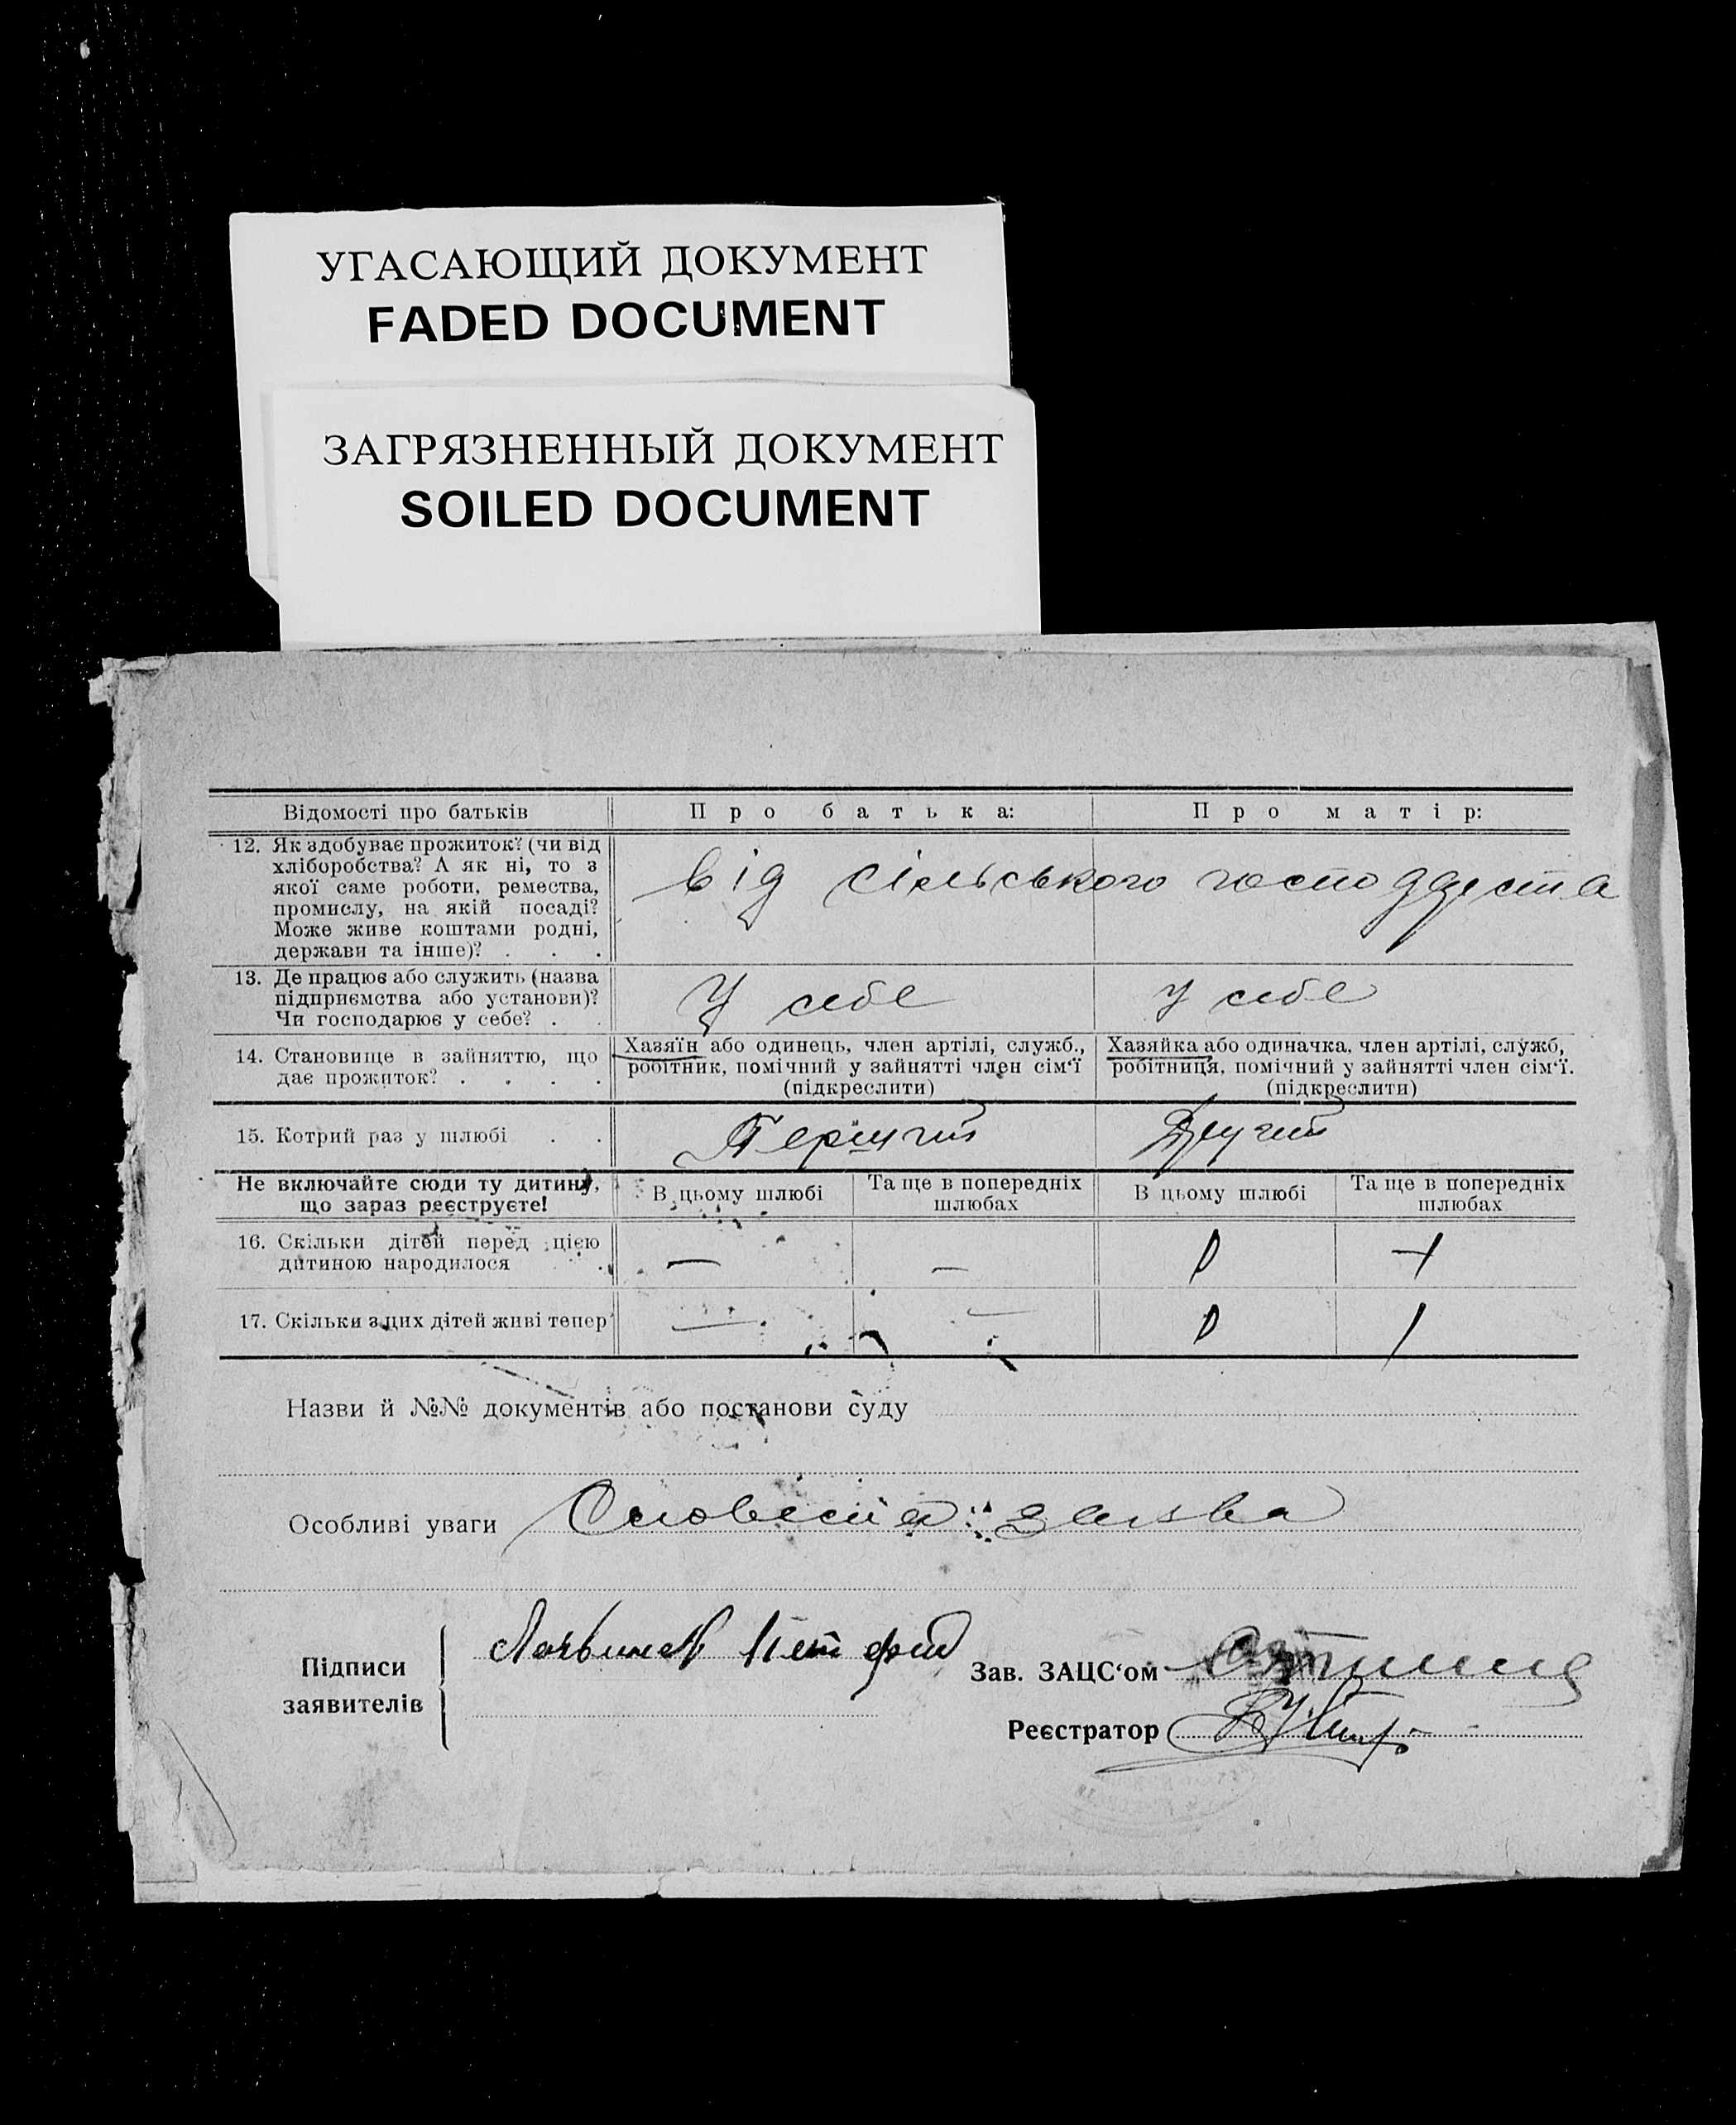 УГАСАЮЩИЙ ДОКУМЕНТ
FADED DOCUMENT
ЗАГРЯЗНЕННЫЙ ДОКУМЕНТ
SOILED DOCUMENT
Відомості про батьків Про батька: Про матір:
12. Як здобуває прожиток? (чи від
хліборобства? А як ні, то з
якої саме роботи, ремества,
промислу, на якій посаді?
Може живе коштами родні,
держави та інше)? . . .
від сільського
13. Де працює або служить (назва
підприємства або установи)?
Чи господарює у себе? . .
У себе у себе
14. Становище в зайняттю, що
дає прожиток? . . . .
Хазяїн або одинець, член артілі, служб.,
робітник, помічний у зайнятті член сім‘ї
(підкреслити)
Хазяйка або одиначка, член артілі, служб,
робітниця, помічний у зайнятті член сім‘ї.
(підкреслити)
15. Котрий раз у шлюбі . . Другий
Не включайте сюди ту дитину,
що зараз реєструєте!
В цьому шлюбі
Та ще в попередніх
шлюбах
В цьому шлюбі
Та ще в попередніх
шлюбах
16. Скільки дітей перед цією
дитиною народилося .
— — 0 1
17. Скільки з цих дітей живі тепер — — 0 1
Назви й №№ документів або постанови суду
Особливі уваги Словесна заява
Підписи
заявителів
Зав. ЗАЦС‘ом
Реєстратор